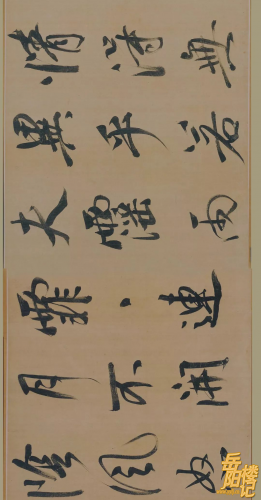 情得無
異乎若
夫霪雨
霏、連
月不開
陰風怒
岳阳楼记